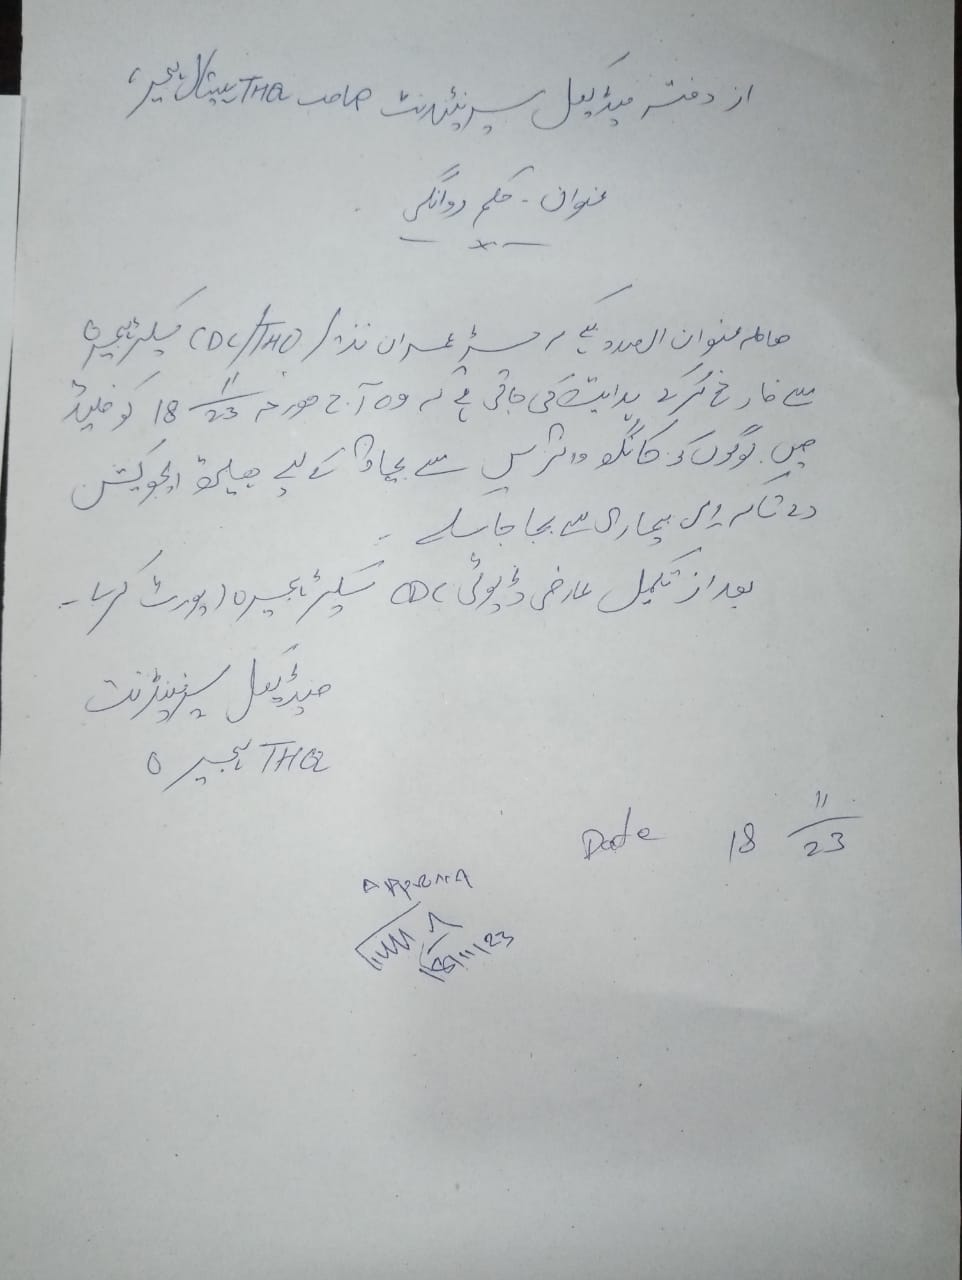 از دفتر میڈیکل سپرنٹنڈنٹ صاحب THQ ہسپتال ہجیرہ
عنوان - حکم روانگی
معاملہ عنوان الصدر کہ مسٹر عمران نذیر CDC/THQ سیکٹر ہجیرہ
سے فارغ کر کے ہدایت کی جاتی ہے کہ وہ آج مورخہ 18 11/23 کو فیلڈ
میں لوگوں کو کانگو وائرس سے بچاؤ کے لیے ہیلتھ ایجوکیشن
دے تاکہ اس بیماری سے بچا جا سکے -
بعد از تکمیل عارضی ڈیوٹی CDC سیکٹر ہجیرہ رپورٹ کریں -
میڈیکل سپرنٹنڈنٹ
THQ ہجیرہ
Date 18 11/23
18/11/23